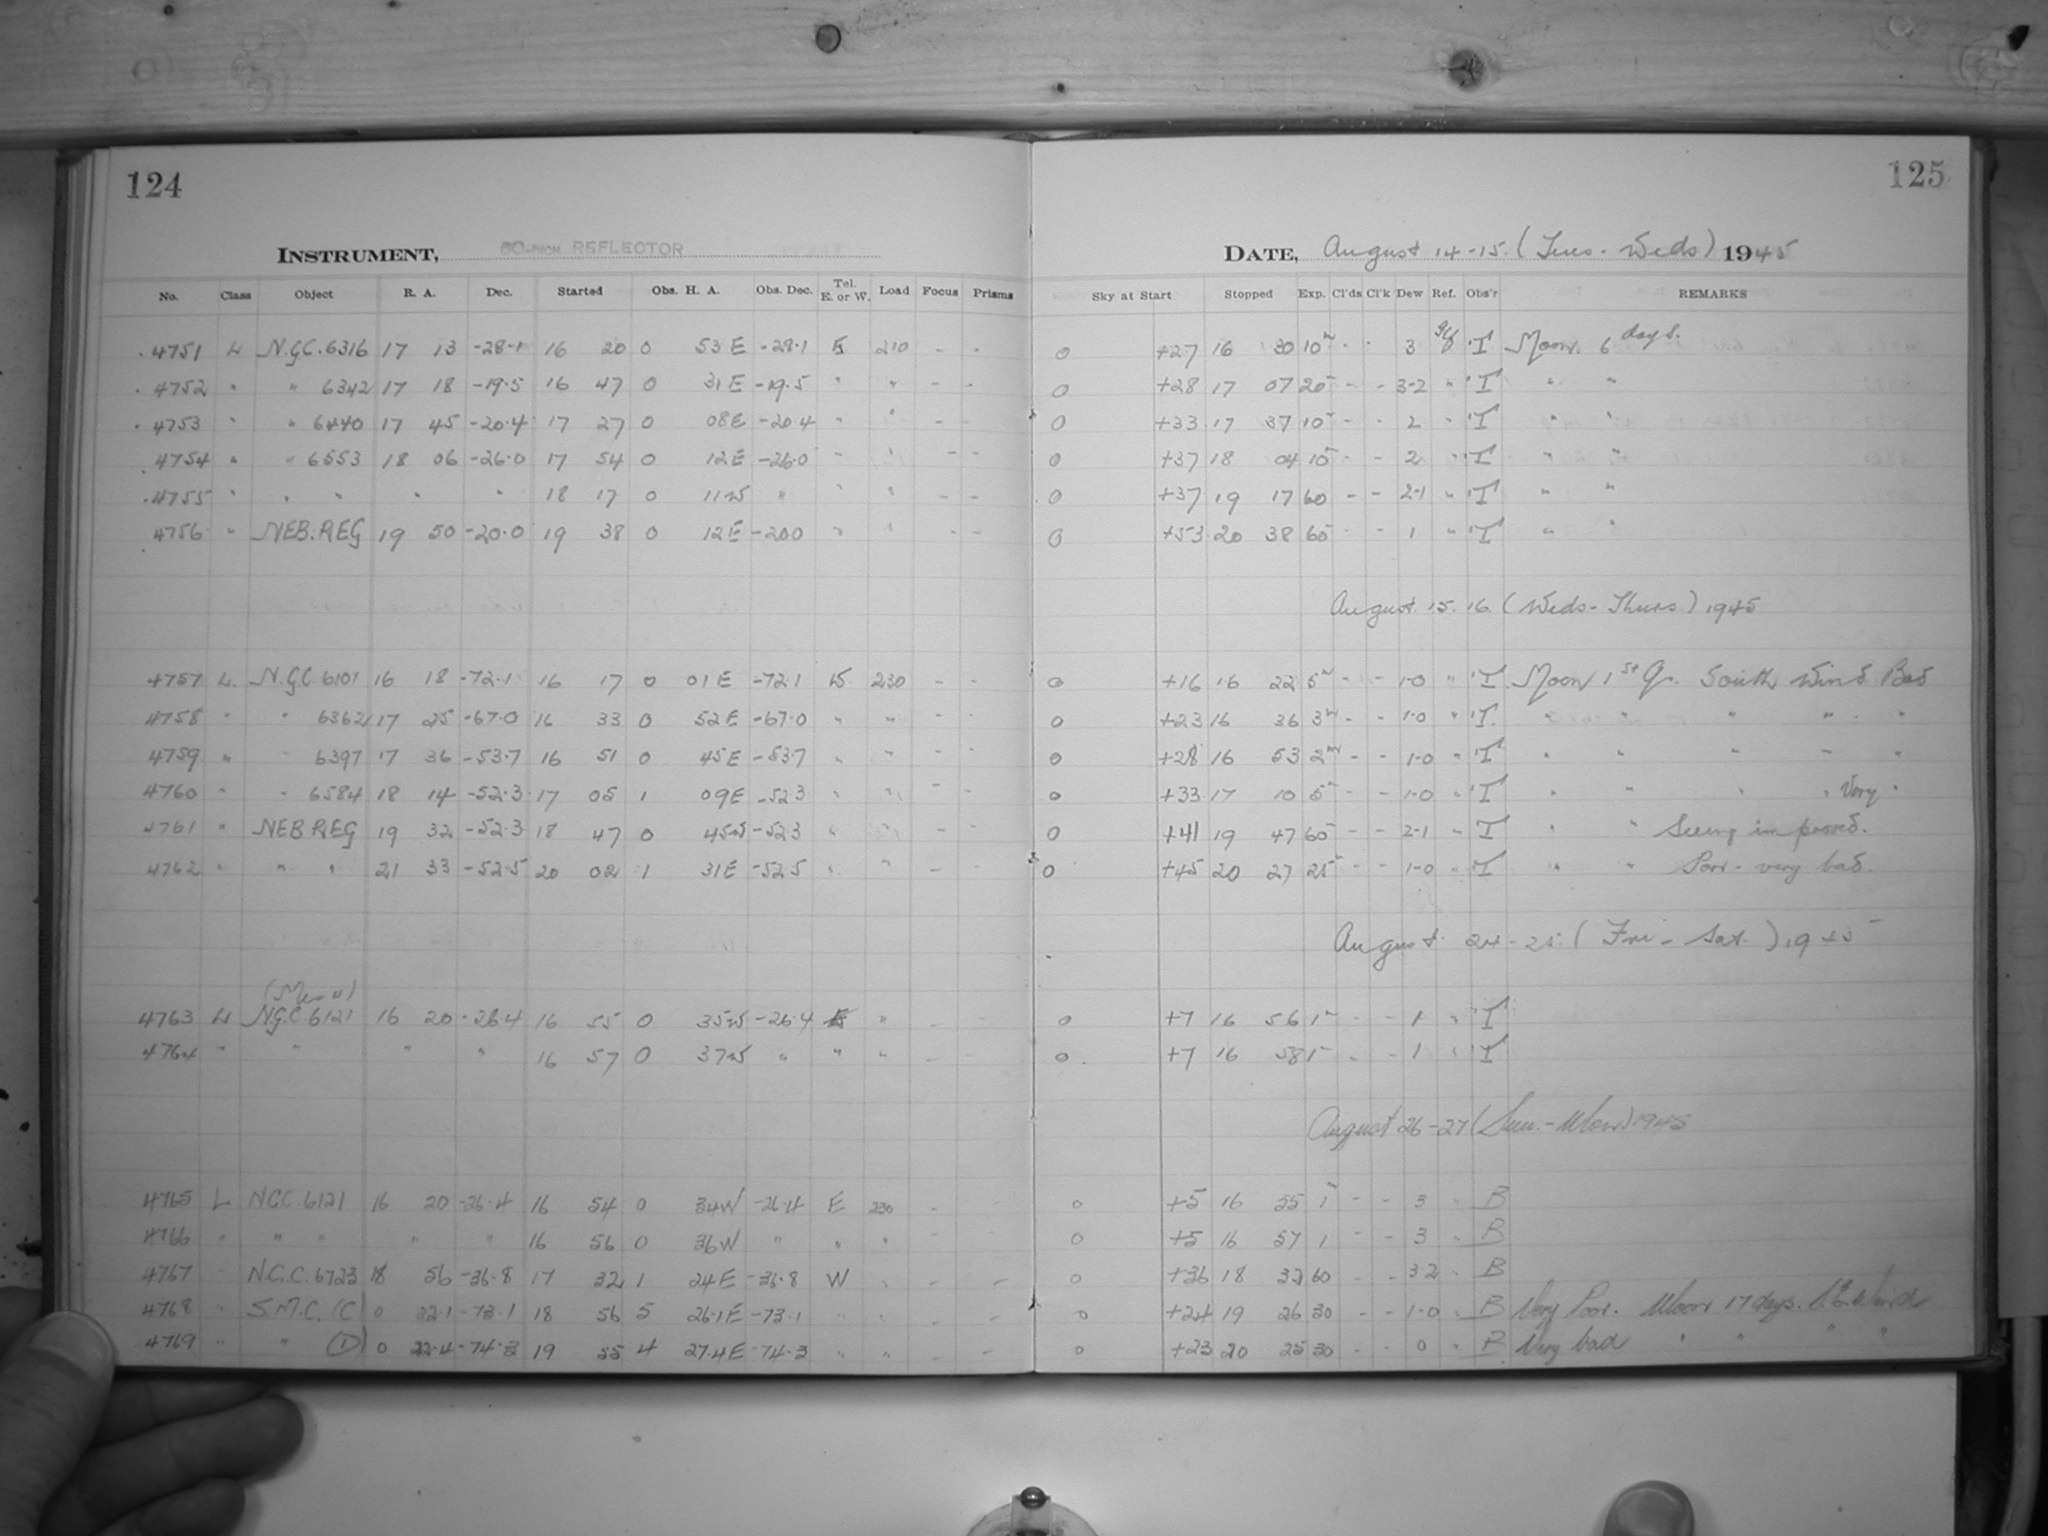 124
125
INSTRUMENT, 60-INCH REFLECTOR
DATE, August 14-15. (Tues. - Weds) 1945
No. Class Object R. A. Dec. Started Obs. H. A. Obs. Dec. Tel. E. or W. Load Focus Prisms Sky at Start Stopped Exp. Cl'ds Cl'k Dew Ref. Obs'r REMARKS
4751 L N.G.C. 6316 17 13 -28.1 16 20 0 53 E -28.1 E 210 - - 0 +27 16 30 10m - - 3 T Moon 6 days.
4752 " " 6342 17 18 -19.5 16 47 0 31 E -19.5 " " - - 0 +28 17 07 20 - - 3-2 " T " "
4753 " " 6440 17 45 -20.4 17 27 0 08 E -20.4 " " - - 0 +33 17 37 10 - - 2 " T " "
4754 " " 6553 18 06 -26.0 17 54 0 12 E -26.0 " " - - 0 +37 18 04 10 - - 2 " T " "
4755 " " " " " 18 17 0 11 W " " " - - 0 +37 19 17 60 - - 2-1 " T " "
4756 " NEB. REG 19 50 -20.0 19 38 0 12 E -20.0 " " - - 0 +53 20 38 60 - - 1 " T " "
August 15.16. (Weds - Thurs.) 1945
4757 L. N.G.C. 6101 16 18 -72.1 16 17 0 01 E -72.1 W 230 - - 0 +16 16 22 5m - - 1-0 " T Moon 1st Qr. South Wind Bad
4758 " " 6362 17 25 -67.0 16 33 0 52 E -67.0 " " - - 0 +23 16 36 3m - - 1-0 " T " " " " "
4759 " " 6397 17 36 -53.7 16 51 0 45 E -53.7 " " - - 0 +28 16 53 2m - - 1-0 " T " " " " "
4760 " " 6584 18 14 -52.3 17 05 1 09 E -52.3 " " - - 0 +33 17 10 5m - - 1-0 " T " " " " Very "
4761 " NEB REG 19 32 -52.3 18 47 0 45 W -52.3 " " - - 0 +41 19 47 60 - - 2-1 " T " " Seeing improved.
4762 " " " 21 33 -52.5 20 02 1 31 E -52.5 " " - 0 +45 20 27 25 - - 1-0 " T " " Poor - very bad.
August 24-25. (Fri - Sat.) 1945
4763 L N.G.C. 6121 16 20 -26.4 16 55 0 35 W -26.4 E " - - 0 +7 16 56 1m - - 1 " T
4764 " " " " 16 57 0 37 W " " " - - 0 +7 16 58 1 - - 1 " T
August 26-27 (Sun. - Mon) 1945
4765 L NGC. 6121 16 20 -26.4 16 54 0 34 W -26.4 E 230 - - 0 +5 16 55 1m - - 3 " B
4766 " " " " " 16 56 0 36 W " " " - - 0 +5 16 57 1 - - 3 " B
4767 " N.G.C. 6723 18 56 -36.8 17 32 1 24 E -36.8 W " - - 0 +36 18 32 60 - - 3-2 " B
4768 " S.M.C. (C) 0 22.1 -73.1 18 56 5 26.1 E -73.1 " " - - 0 +24 19 26 30 - - 1-0 " B Very Poor. Moon 17 days. S.E. Wind
4769 " " 0 22.4 -74.3 19 55 4 27.4 E -74.3 " " - - 0 +23 20 25 30 - - 0 " B Very bad " " " "